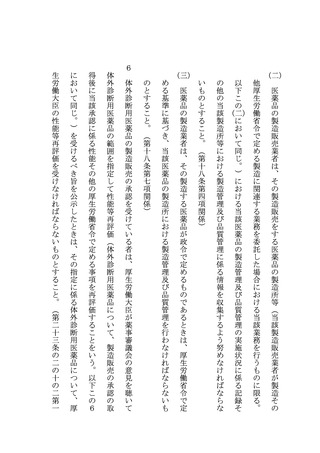 ㈡　医薬品の製造販売業者は、その製造販売をする医薬品の製造所等（当該製造販売業者が製造その
他厚生労働省令で定める製造に関連する業務を委託した場合における当該業務を行うものに限る。
以下この㈡において同じ。）における当該医薬品の製造管理及び品質管理の実施状況に係る記録そ
の他の当該製造所等における製造管理及び品質管理に係る情報を収集するよう努めなければならな
いものとすること。（第十八条第四項関係）
㈢　医薬品の製造業者は、その製造する医薬品が政令で定めるものであるときは、厚生労働省令で定
める基準に基づき、当該医薬品の製造所における製造管理及び品質管理を行わなければならないも
のとすること。（第十八条第七項関係）
６　体外診断用医薬品の製造販売の承認を受けている者は、厚生労働大臣が薬事審議会の意見を聴いて
体外診断用医薬品の範囲を指定して性能等再評価（体外診断用医薬品について、製造販売の承認の取
得後に当該承認に係る性能その他の厚生労働省令で定める事項を再評価することをいう。以下この６
において同じ。）を受けるべき旨を公示したときは、その指定に係る体外診断用医薬品について、厚
生労働大臣の性能等再評価を受けなければならないものとすること。（第二十三条の二の十の二第一